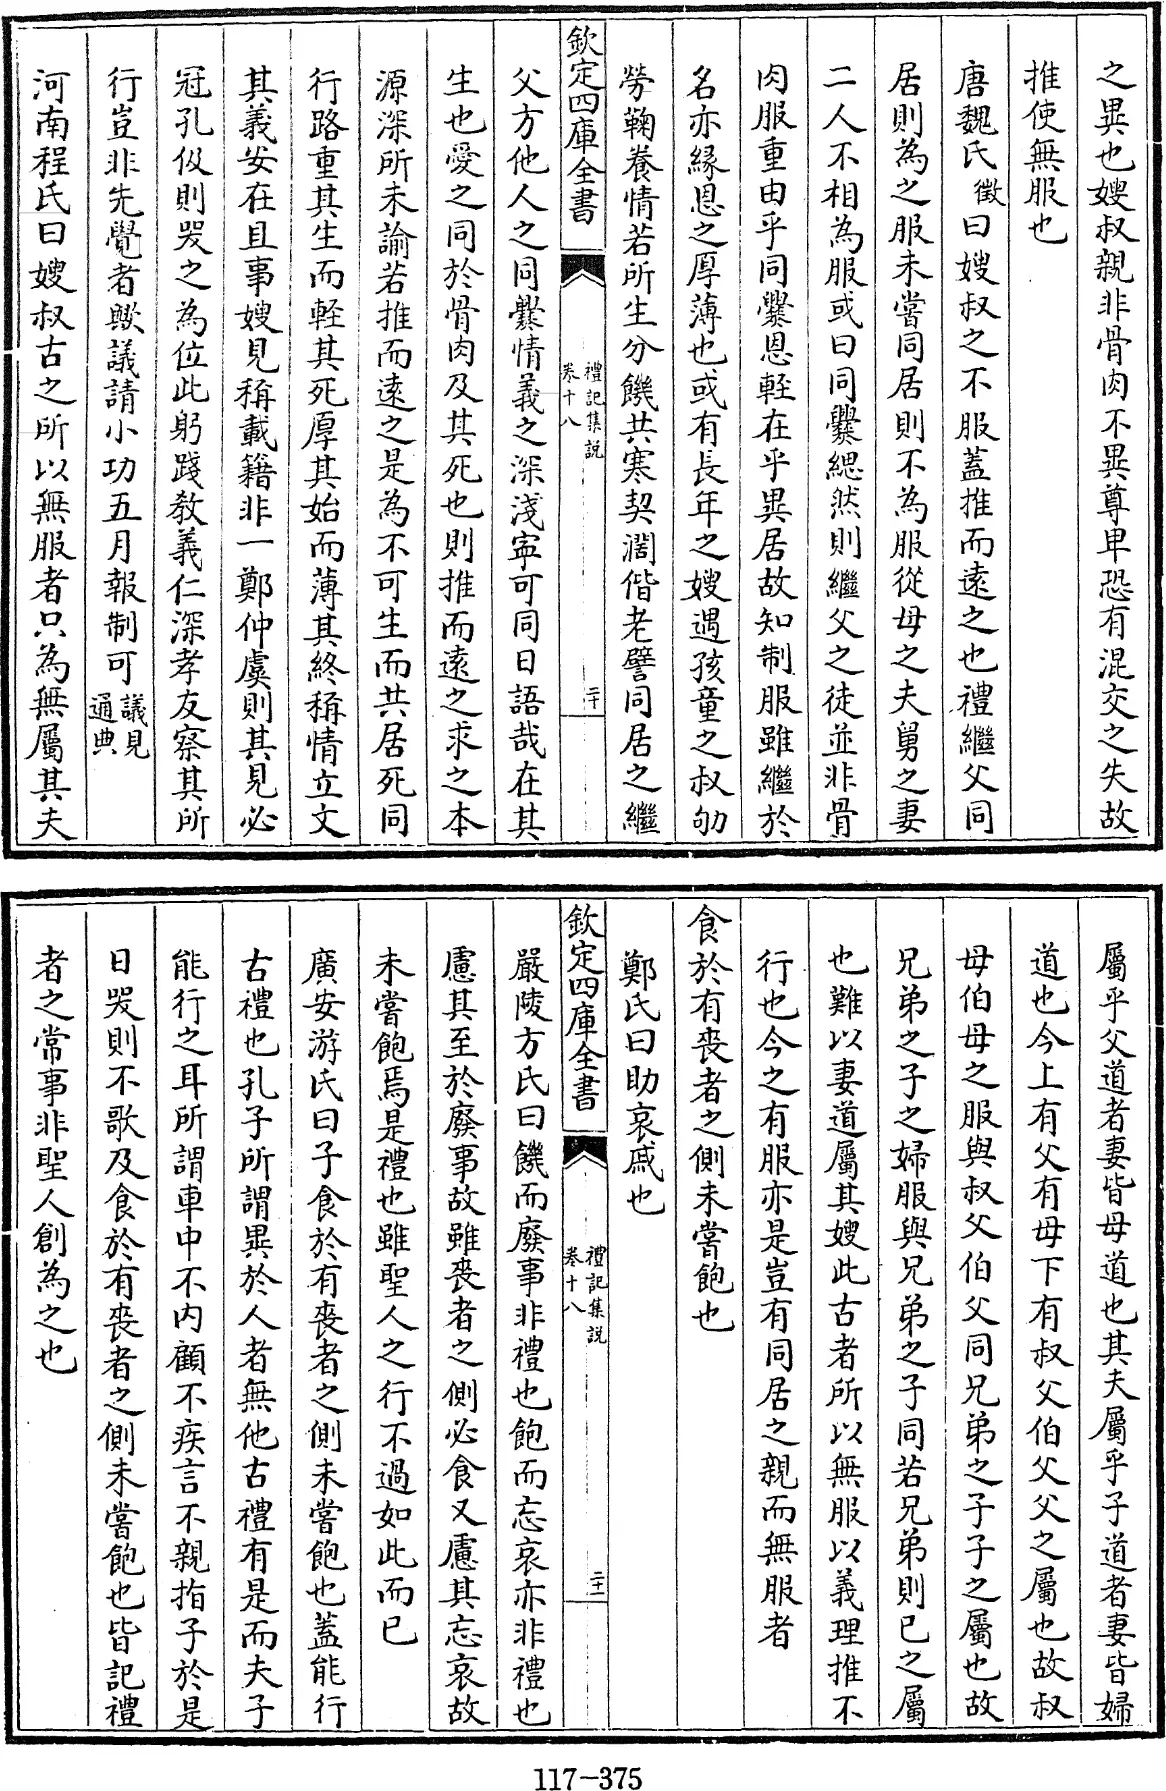 之異也嫂叔親非骨肉不異尊卑恐有混交之失故
推使無服也
唐魏氏徵曰嫂叔之不服蓋推而遠之也禮繼父同
居則為之服未嘗同居則不為服從母之夫舅之妻
二人不相為服或曰同爨緦然則繼父之徒並非骨
肉服重由乎同爨恩輕在乎異居故知制服雖繼於
名亦緣恩之厚薄也或有長年之嫂遇孩童之叔劬
勞鞠養情若所生分饑共寒契濶偕老譬同居之繼
欽定四庫全書
禮記集説
卷十八
二十
父方他人之同爨情義之深淺寧可同日語哉在其
生也愛之同於骨肉及其死也則推而遠之求之本
源深所未諭若推而遠之是為不可生而共居死同
行路重其生而輕其死厚其始而薄其終稱情立文
其義安在且事嫂見稱載籍非一鄭仲虞則其見必
冠孔伋則哭之為位此躬踐教義仁深孝友察其所
行豈非先覺者歟議請小功五月報制可議見通典
河南程氏曰嫂叔古之所以無服者只為無屬其夫
屬乎父道者妻皆母道也其夫屬乎子道者妻皆婦
道也今上有父有母下有叔父伯父父之屬也故叔
母伯母之服與叔父伯父同兄弟之子子之屬也故
兄弟之子之婦服與兄弟之子同若兄弟則已之屬
也難以妻道屬其嫂此古者所以無服以義理推不
行也今之有服亦是豈有同居之親而無服者
食於有喪者之側未嘗飽也
鄭氏曰助哀戚也
欽定四庫全書
禮記集説
卷十八
二十一
嚴陵方氏曰饑而廢事非禮也飽而忘哀亦非禮也
慮其至於廢事故雖喪者之側必食又慮其忘哀故
未嘗飽焉是禮也雖聖人之行不過如此而已
廣安游氏曰子食於有喪者之側未嘗飽也蓋能行
古禮也孔子所謂異於人者無他古禮有是而夫子
能行之耳所謂車中不内顧不疾言不親指子於是
日哭則不歌及食於有喪者之側未嘗飽也皆記禮
者之常事非聖人創為之也
117-375